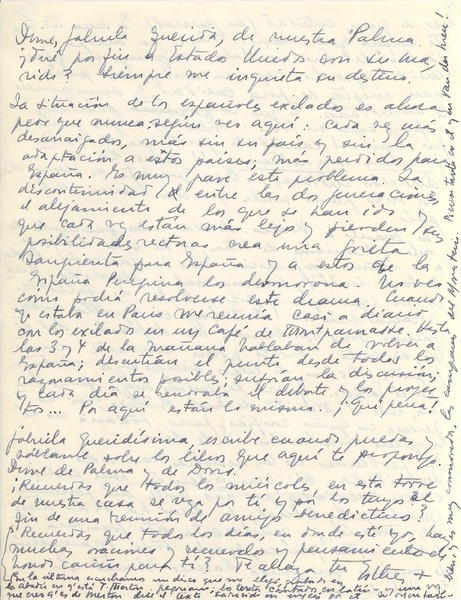 Dime, Gabriela querida, de nuestra Palma.
¿Fué por fin a Estados Unidos con su ma-
rido? Siempre me inquieta su destino.
La situación de los españoles exilados es ahora
peor que nunca, según veo aquí. Cada vez más
desarraigados, más sin su país y sin la
adaptación a estos países; más perdidos para
España. Es muy grave este problema. La
discontinuidad entre las dos generaciones,
el alejamiento de los que se han ido
que cada vez están más lejos y pierden sus
posibilidades rectoras crea una grieta
sangrienta para España y a estos de la
España Peregrina los desmorona. No veo
como podrá resolverse este drama. Cuando
yo estaba en París me reunía casi a diario
con los exilados en un café de Montparnasse. Hasta
las 3 y 4 de la mañana hablaban de volver a
España; discutían el punto desde todos los
razonamientos posibles, sufrían la discusión
y cada día se renovaba el debate y los proyec-
tos... Por aquí están lo mismo. ¡Qué pena!
Gabriela queridísima, escribe cuando puedas y
háblame sobre los libros que aquí te propongo.
Dime de Palma y de Doris.
¿Recuerdas que todos los miércoles en esta torre
de nuestra casa se reza por ti y por los tuyos al
fin de una reunión de amigos benedictinos?
¿Recuerdas que todos los días, en donde esté yo, hay
muchas oraciones y recuerdos y pensamientos de
hondo cariño para ti? Te abraza tu Esther
En la última escuchamos un disco que me llegó, grabado en
la abadía en q' está T. Merton,
que creo q' es de Merton dice el texto